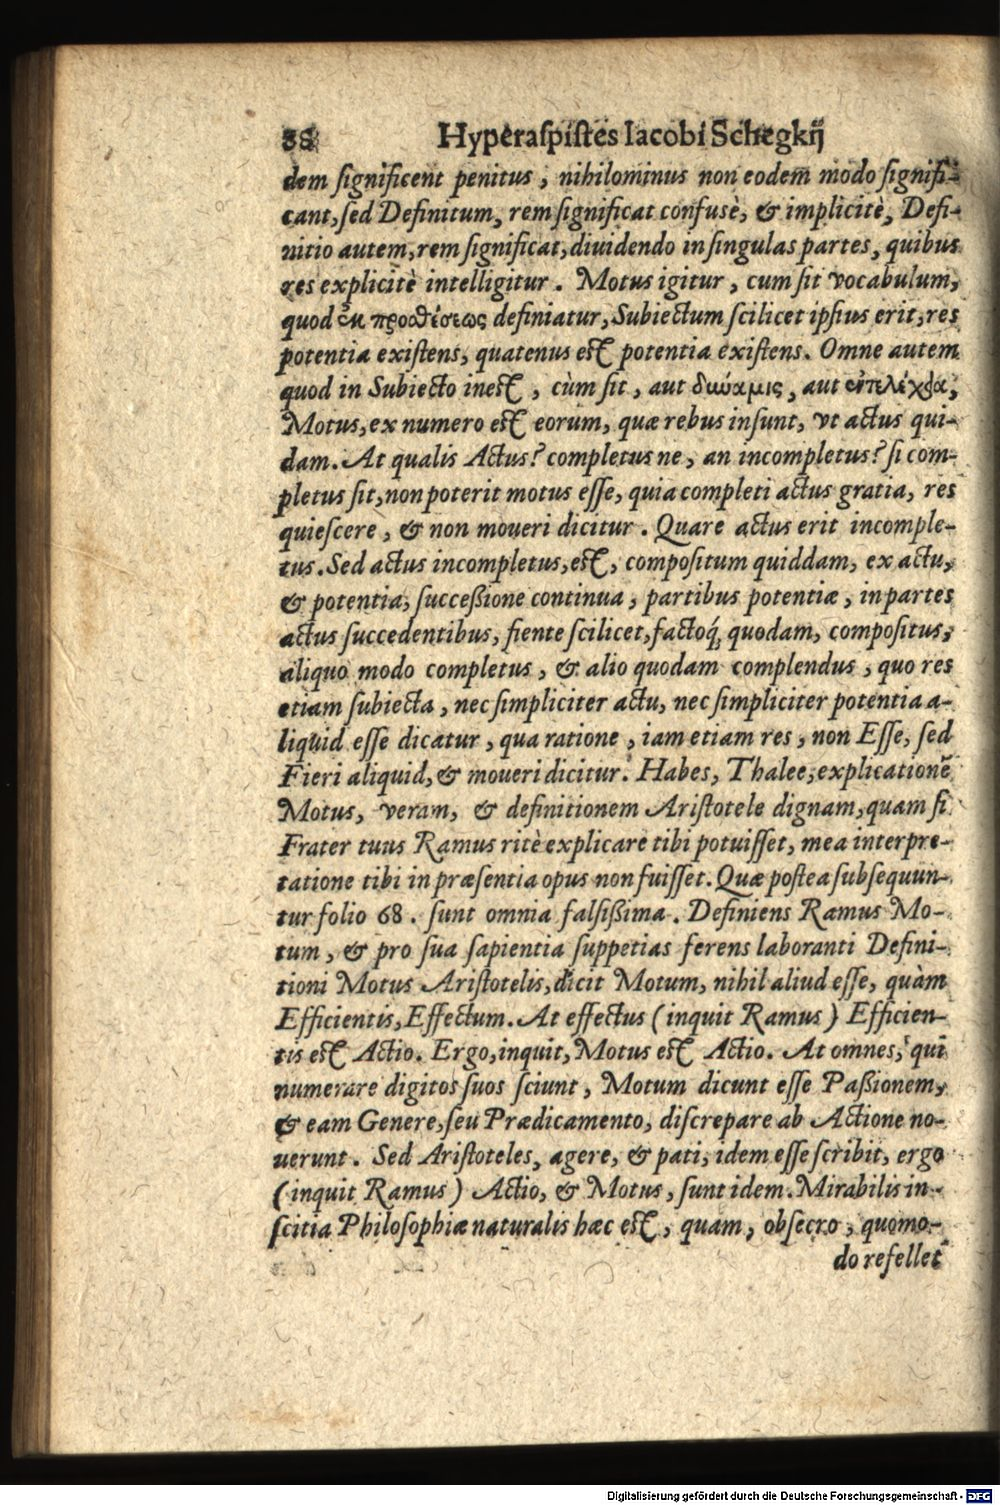 38 Hyperaſpiſtes Iacobi Schegkij
dem ſignificent penitus, nihilominus non eodem modo ſignifi-
cant, ſed Definitum, rem ſignificat confusè, & implicitè, Defi-
nitio autem, rem ſignificat, diuidendo in ſingulas partes, quibus
res explicitè intelligitur. Motus igitur, cum ſit vocabulum,
quod ἐκ προσθέσεως definiatur, Subiectum ſcilicet ipſius erit, res
potentia exiſtens, quatenus eſt potentia exiſtens. Omne autem
quod in Subiecto ineſt, cùm ſit, aut δύναμις, aut ἐντελέχεια,
Motus, ex numero eſt eorum, quæ rebus inſunt, vt actus qui-
dam. At qualis Actus? completus ne, an incompletus? ſi com-
pletus ſit, non poterit motus eſſe, quia completi actus gratia, res
quieſcere, & non moueri dicitur. Quare actus erit incomple-
tus. Sed actus incompletus, eſt, compoſitum quiddam, ex actu,
& potentia, ſucceßione continua, partibus potentiæ, in partes
actus ſuccedentibus, fiente ſcilicet, factoq́; quodam, compoſitus,
aliquo modo completus, & alio quodam complendus, quo res
etiam ſubiecta, nec ſimpliciter actu, nec ſimpliciter potentia a-
liquid eſſe dicatur, qua ratione, iam etiam res, non Eſſe, ſed
Fieri aliquid, & moueri dicitur. Habes, Thalee, explicationē
Motus, veram, & definitionem Ariſtotele dignam, quam ſi
Frater tuus Ramus ritè explicare tibi potuiſſet, mea interpre-
tatione tibi in præſentia opus non fuiſſet. Quæ poſtea ſubſequun-
tur folio 68. ſunt omnia falſißima. Definiens Ramus Mo-
tum, & pro ſua ſapientia ſuppetias ferens laboranti Defini-
tioni Motus Ariſtotelis, dicit Motum, nihil aliud eſſe, quàm
Efficientis, Effectum. At effectus (inquit Ramus) Efficien-
tis eſt Actio. Ergo, inquit, Motus eſt Actio. At omnes, qui
numerare digitos ſuos ſciunt, Motum dicunt eſſe Paßionem,
& eam Genere, ſeu Prædicamento, diſcrepare ab Actione no-
uerunt. Sed Ariſtoteles, agere, & pati, idem eſſe ſcribit, ergo
(inquit Ramus) Actio, & Motus, ſunt idem. Mirabilis in-
ſcitia Philoſophiæ naturalis hæc eſt, quam, obſecro, quomo-
do refellet
Digitalisierung gefördert durch die Deutsche Forschungsgemeinschaft - DFG